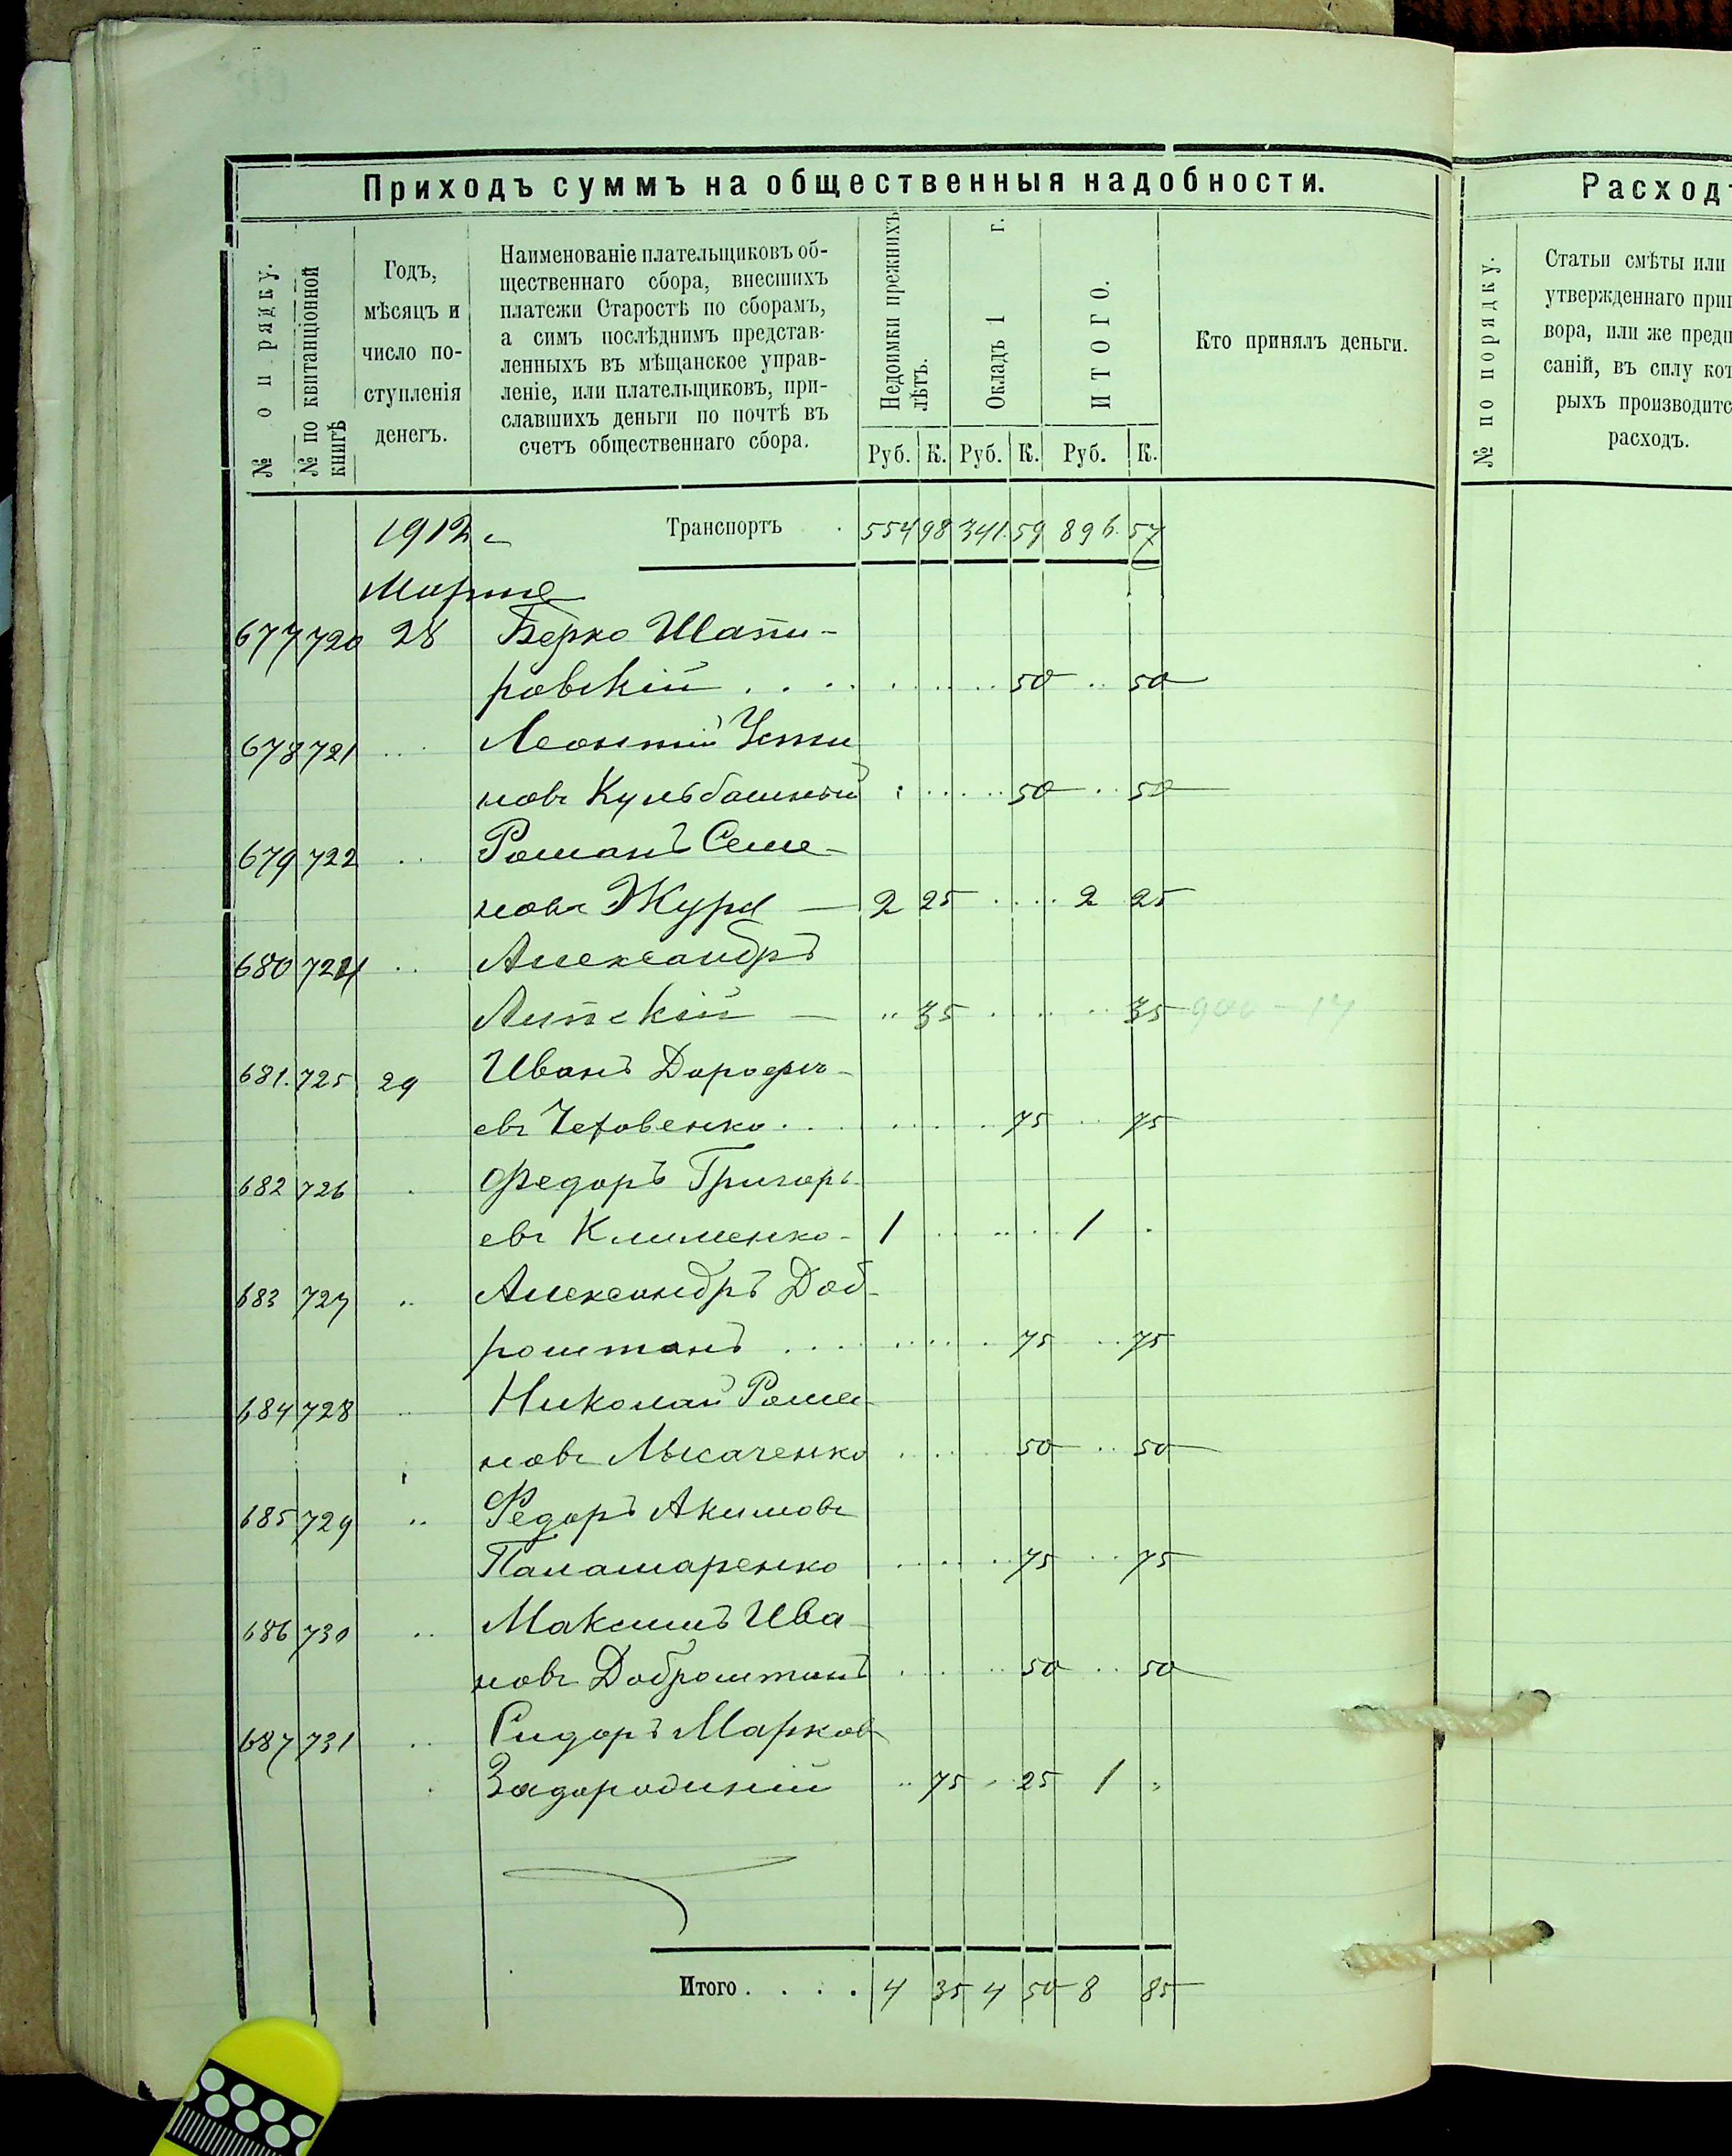 Приходъ суммъ на общественныя надобности.
Расходъ
№ по рядку.
№ по квитанціонной книгѣ
Годъ,
мѣсяцъ и
число по-
ступленія
денегъ.
Наименованіе плательщиковъ об-
щественнаго сбора, внесшихъ
платежи Старостѣ по сборамъ,
а симъ послѣднимъ представ-
ленныхъ въ мѣщанское управ-
леніе, или плательщиковъ, при-
славшихъ деньги по почтѣ въ
счетъ общественнаго сбора.
Недоимки прежнихъ лѣтъ.
Окладъ 1 г.
ИТОГО.
Руб. К. Руб. К. Руб. К.
Кто принялъ деньги.
№ по порядку.
Статьи смѣты или
утвержденнаго при
вора, или же предп
саній, въ силу кот
рыхъ производитс
расходъ.
1912 г Транспортъ 554 98 341. 59 896. 57
Марта
677 720 28 Берко Шапи-
ровскій .... 50 .. 50
678 721 .. Леонтій Усти
новъ Кульбашный 50 .. 50
679 722 .. Романъ Семе-
новъ Жура — 2 25 .... 2 25
680 724 .. Александръ
Липскій — .. 35 .. 35
681. 725 29 Иванъ Дорофѣ-
евъ Чеховенко .. 75 .. 75
682 726 . Федоръ Григорь-
евъ Клименко - 1 .. 1 .
683 727 .. Александръ Доб-
роштанъ .... 75 .. 75
684 728 .. Николай Рома
новъ Лысаченко .... 50 .. 50
685 729 .. Федоръ Акимовъ
Паламаренко .... 75 .. 75
686 730 .. Максимъ Ива
новъ Доброштанъ .... 50 .. 50
687 731 .. Сидоръ Марковъ
Задорожній .. 75 . 25 1 "
Итого . . . . 4 35 4 50 8 85